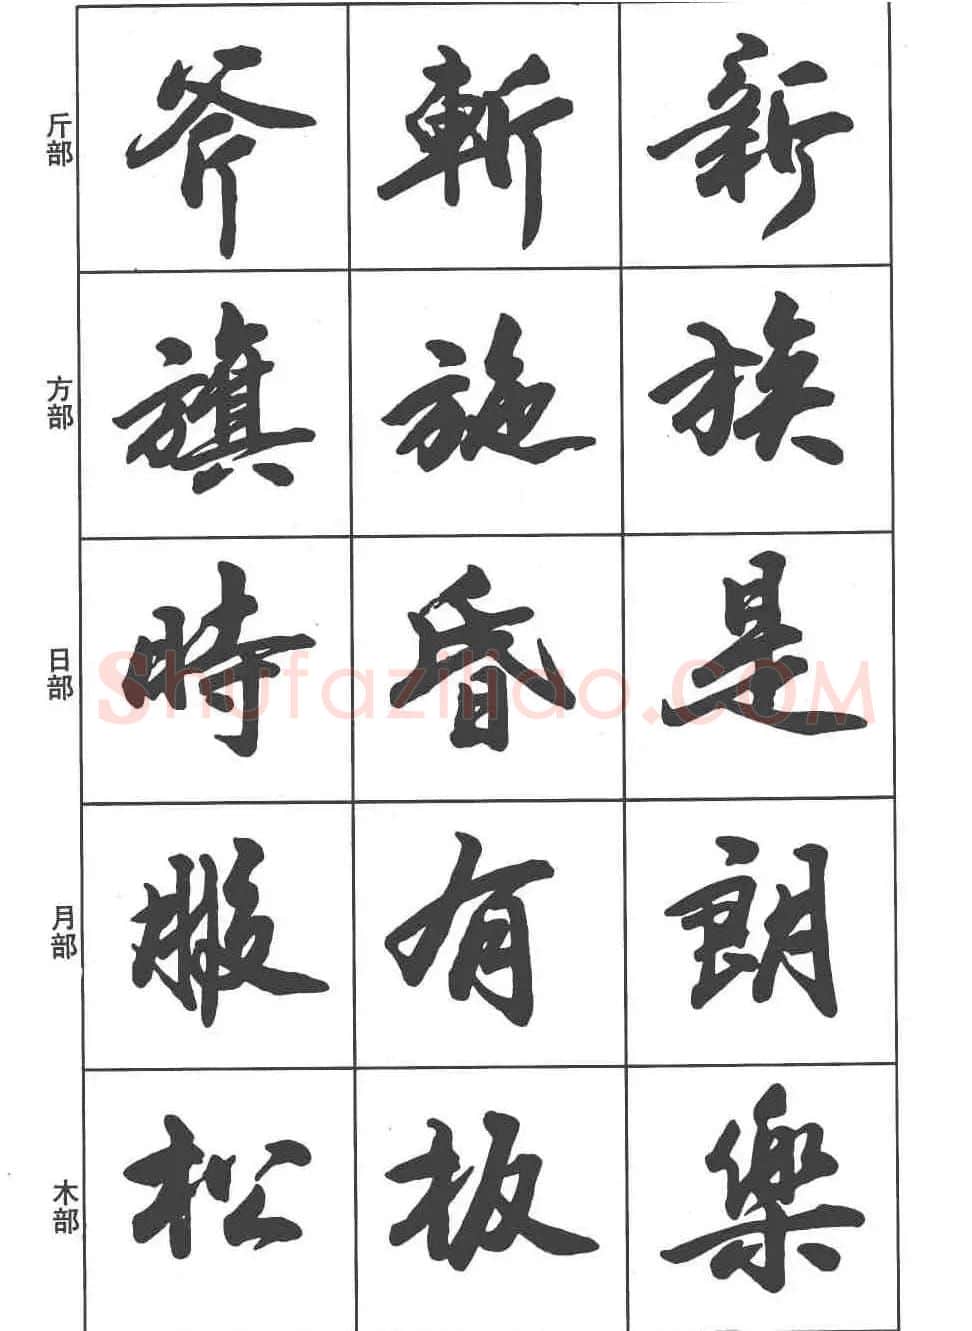 斤部 斧 斬 新
方部 旗 施 族
日部 時 昏 是
Shufaziliao.COM
月部 服 有 朗
木部 松 板 樂